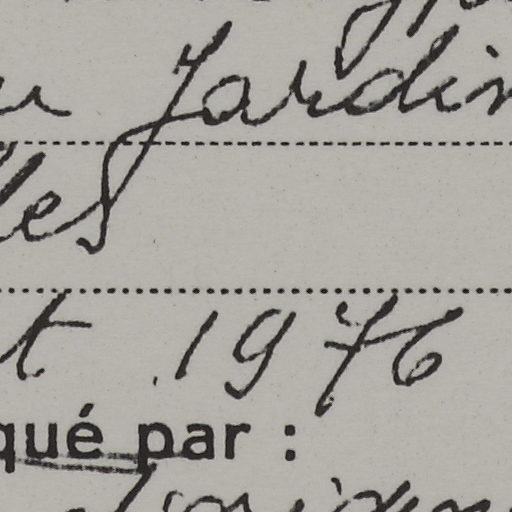 u Jardin
les
t 1976
qué par :